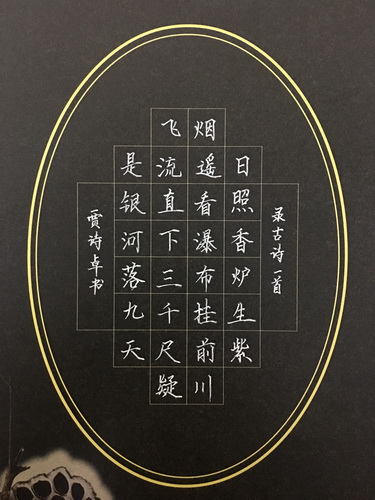 录古诗一首
日照香炉生紫
烟遥看瀑布挂前川
飞流直下三千尺疑
是银河落九天
贾诗卓书